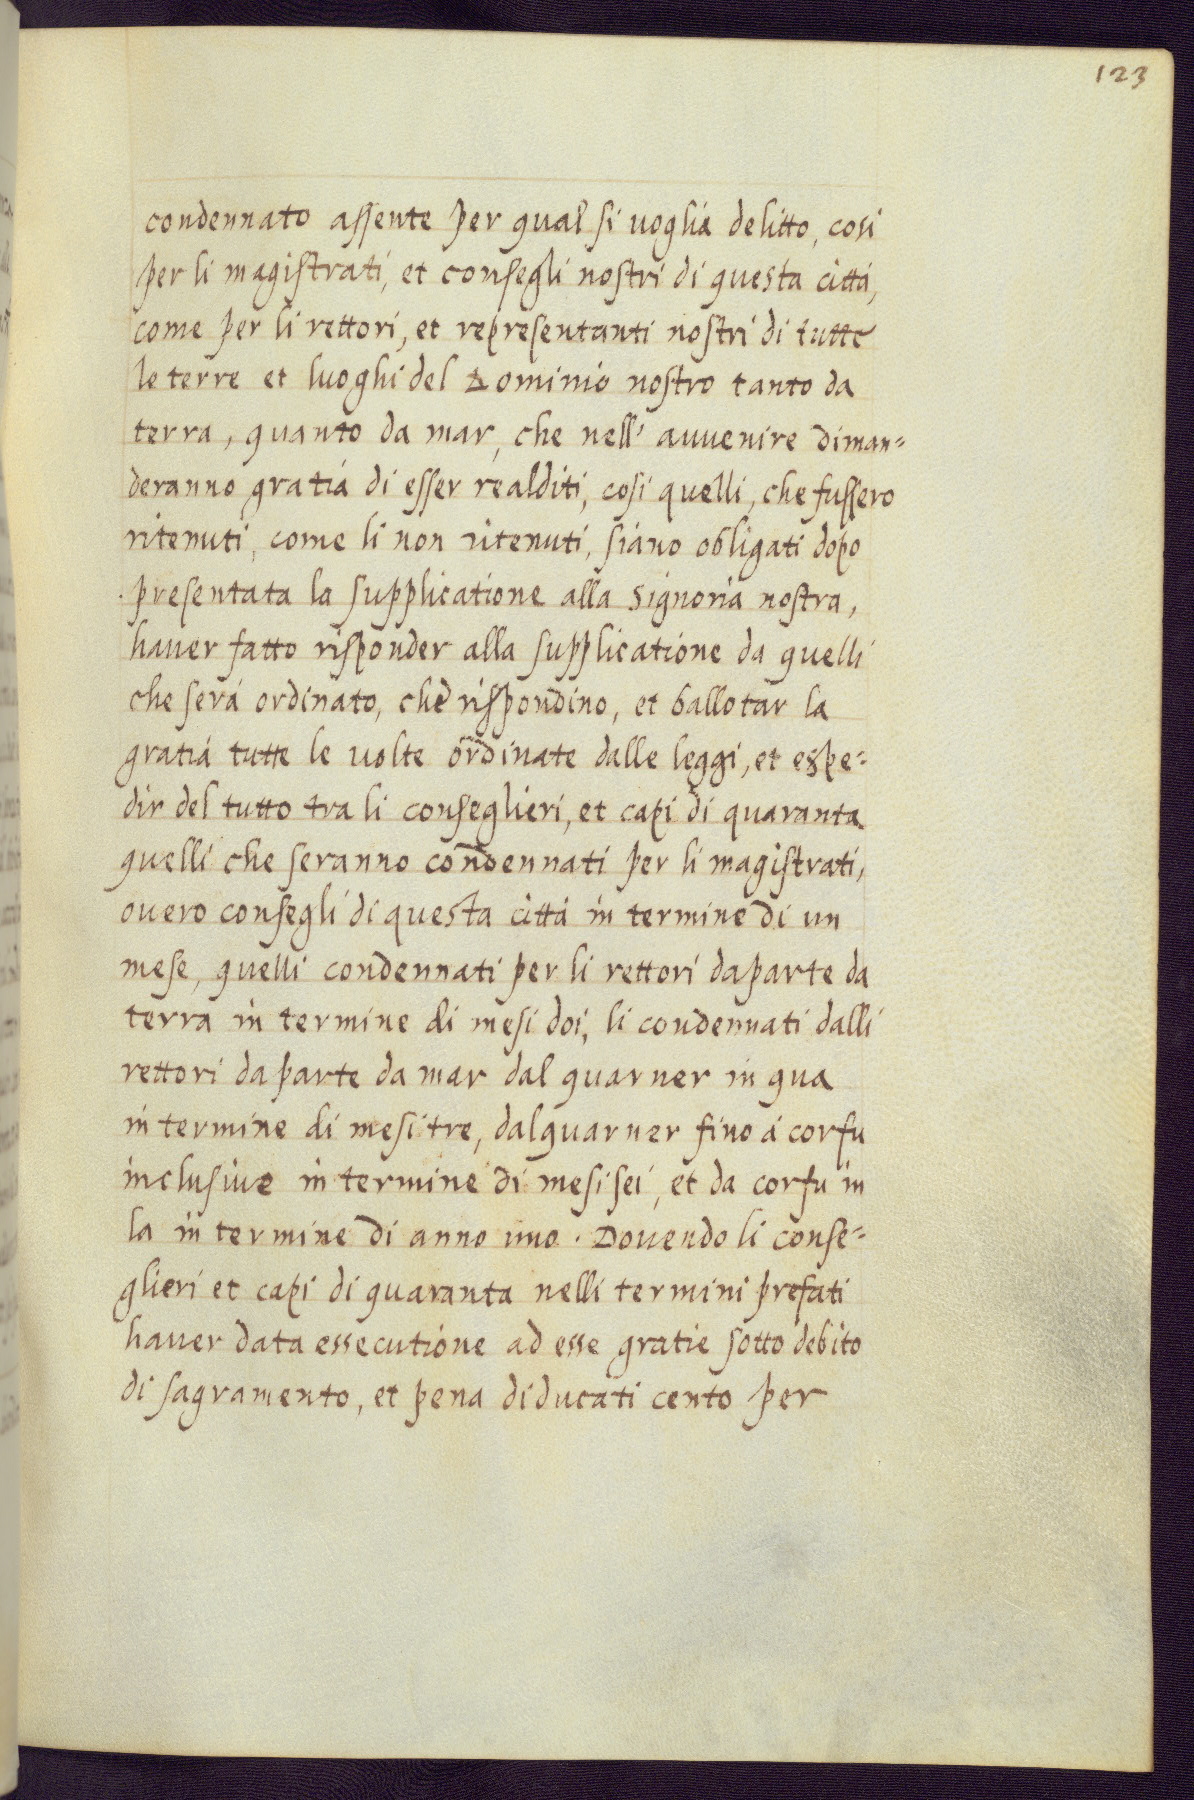 123
condennato assente per qual si voglia delitto, cosi
per li magistrati, et consegli nostri di questa città,
come per li rettori, et representanti nostri di tutte
le terre et luoghi del Dominio nostro tanto da
terra, quanto da mar, che nell' auuenire diman=
deranno gratia di esser realditi, cosi quelli, che fussero
ritenuti, come li non ritenuti, siano obligati dopo
presentata la supplicatione alla Signoria nostra,
hauer fatto risponder alla supplicatione da quelli
che serà ordinato, che rispondino, et ballotar la
gratia tutte le uolte ordinate dalle leggi, et espe=
dir del tutto tra li conseglieri, et capi di quaranta
quelli che seranno condennati per li magistrati,
ouero consegli di questa città in termine di un
mese, quelli condennati per li rettori da parte da
terra in termine di mesi doi, li condennati dalli
rettori da parte da mar dal quarner in qua
in termine di mesi tre, dal quarner fino à corfu
inclusiue in termine di mesi sei, et da corfu in
la in termine di anno uno. Douendo li conse=
glieri et capi di quaranta nelli termini prefati
hauer data essecutione ad esse gratie sotto debito
di sagramento, et pena di ducati cento per